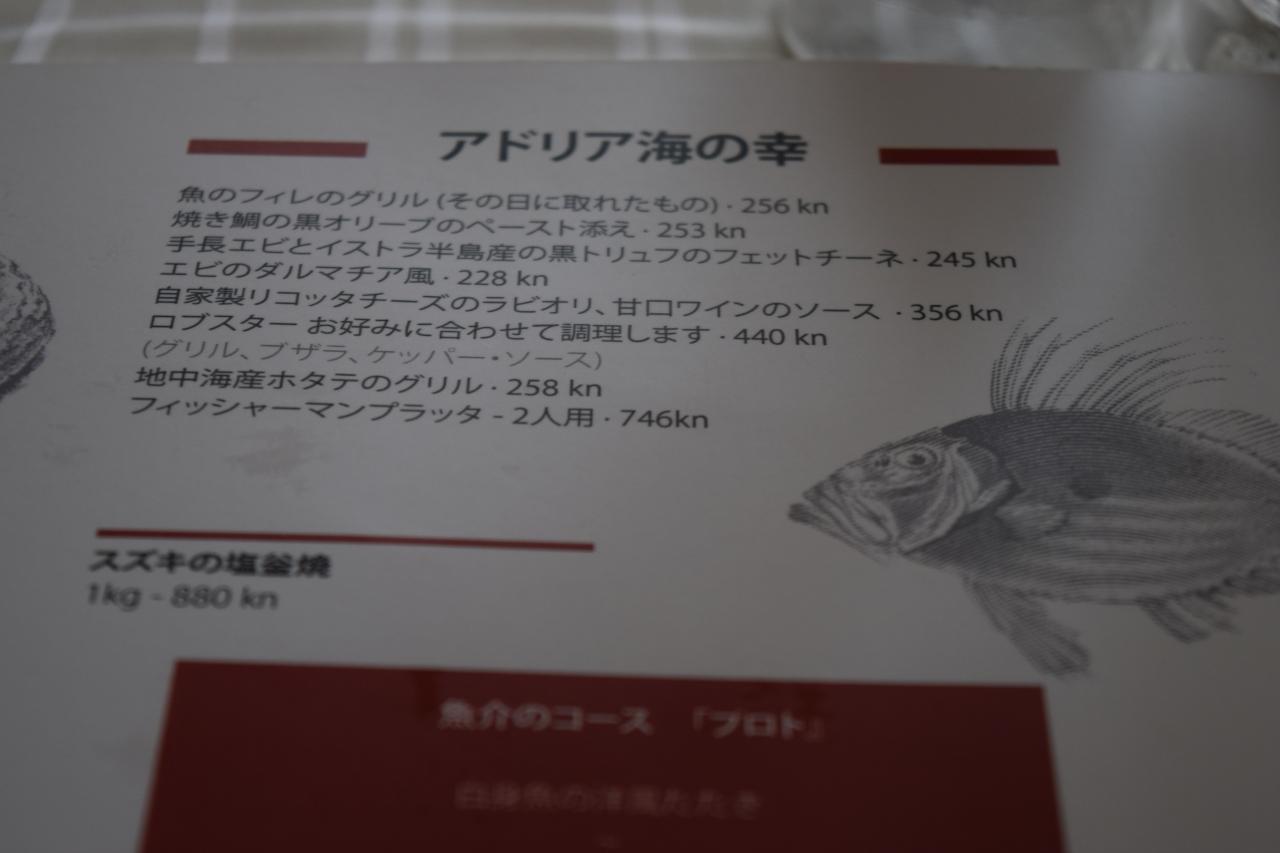 アドリア海の幸
魚のフィレのグリル (その日に取れたもの) · 256 kn
焼き鯛の黒オリーブのペースト添え · 253 kn
手長エビとイストラ半島産の黒トリュフのフェットチーネ · 245 kn
エビのダルマチア風 · 228 kn
自家製リコッタチーズのラビオリ、甘口ワインのソース · 356 kn
ロブスター お好みに合わせて調理します · 440 kn
(グリル、ブザラ、ケッパー・ソース)
地中海産ホタテのグリル · 258 kn
フィッシャーマンプラッタ - 2人用 · 746kn
スズキの塩釜焼
1kg - 880 kn
魚介のコース 「プロト」
白身魚の洋風たたき